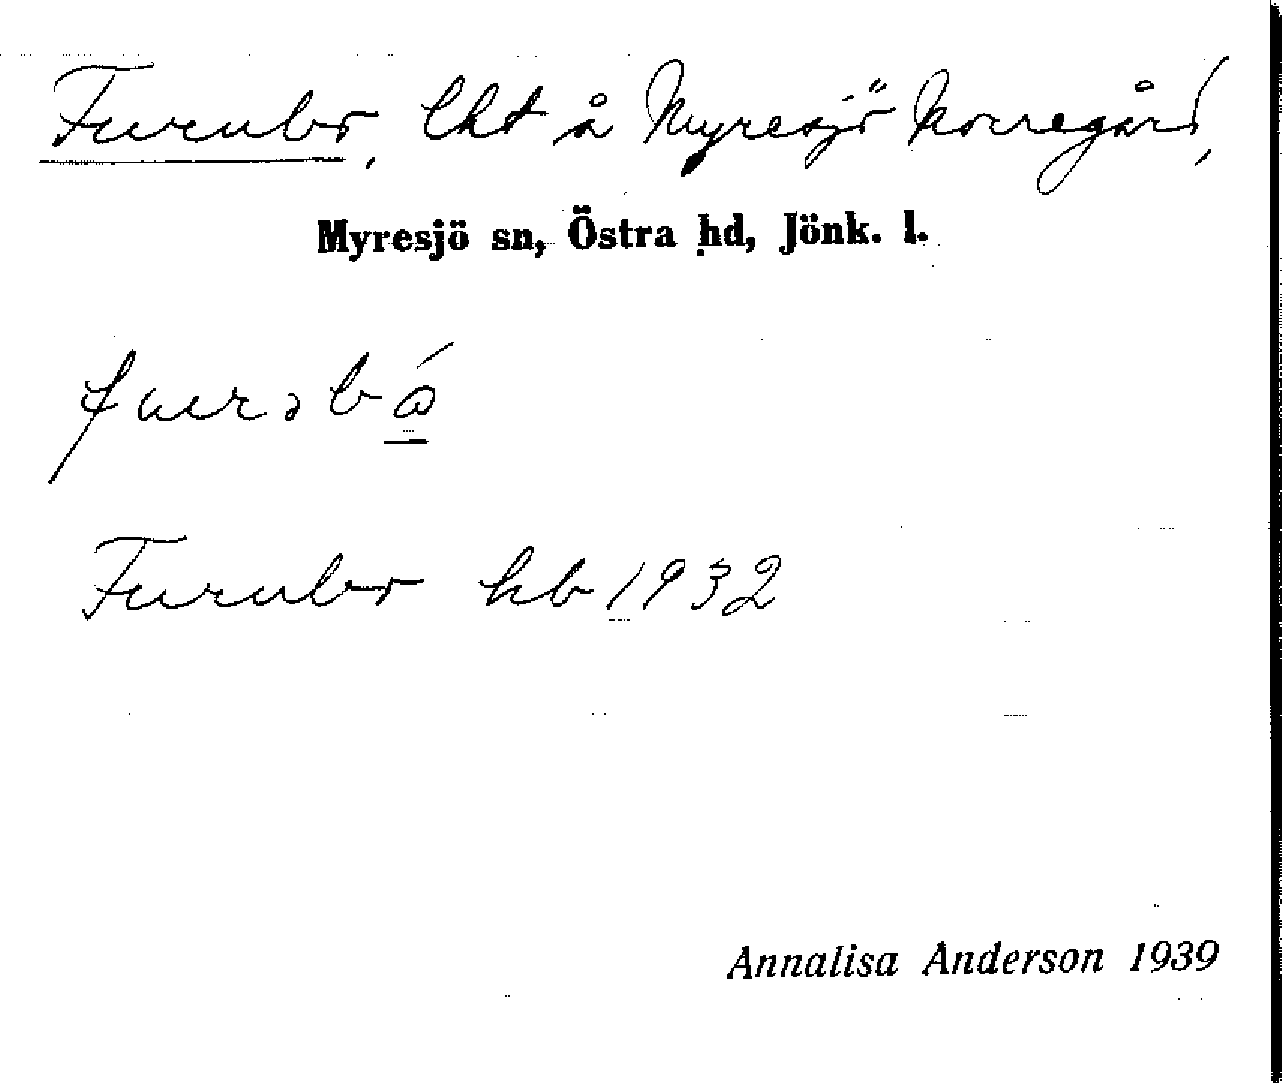 Furubo, lht å Myresjö Norregård,
Myresjö sn, Östra hd, Jönk. l.
Furubo hb 1932
Annalisa Anderson 1939